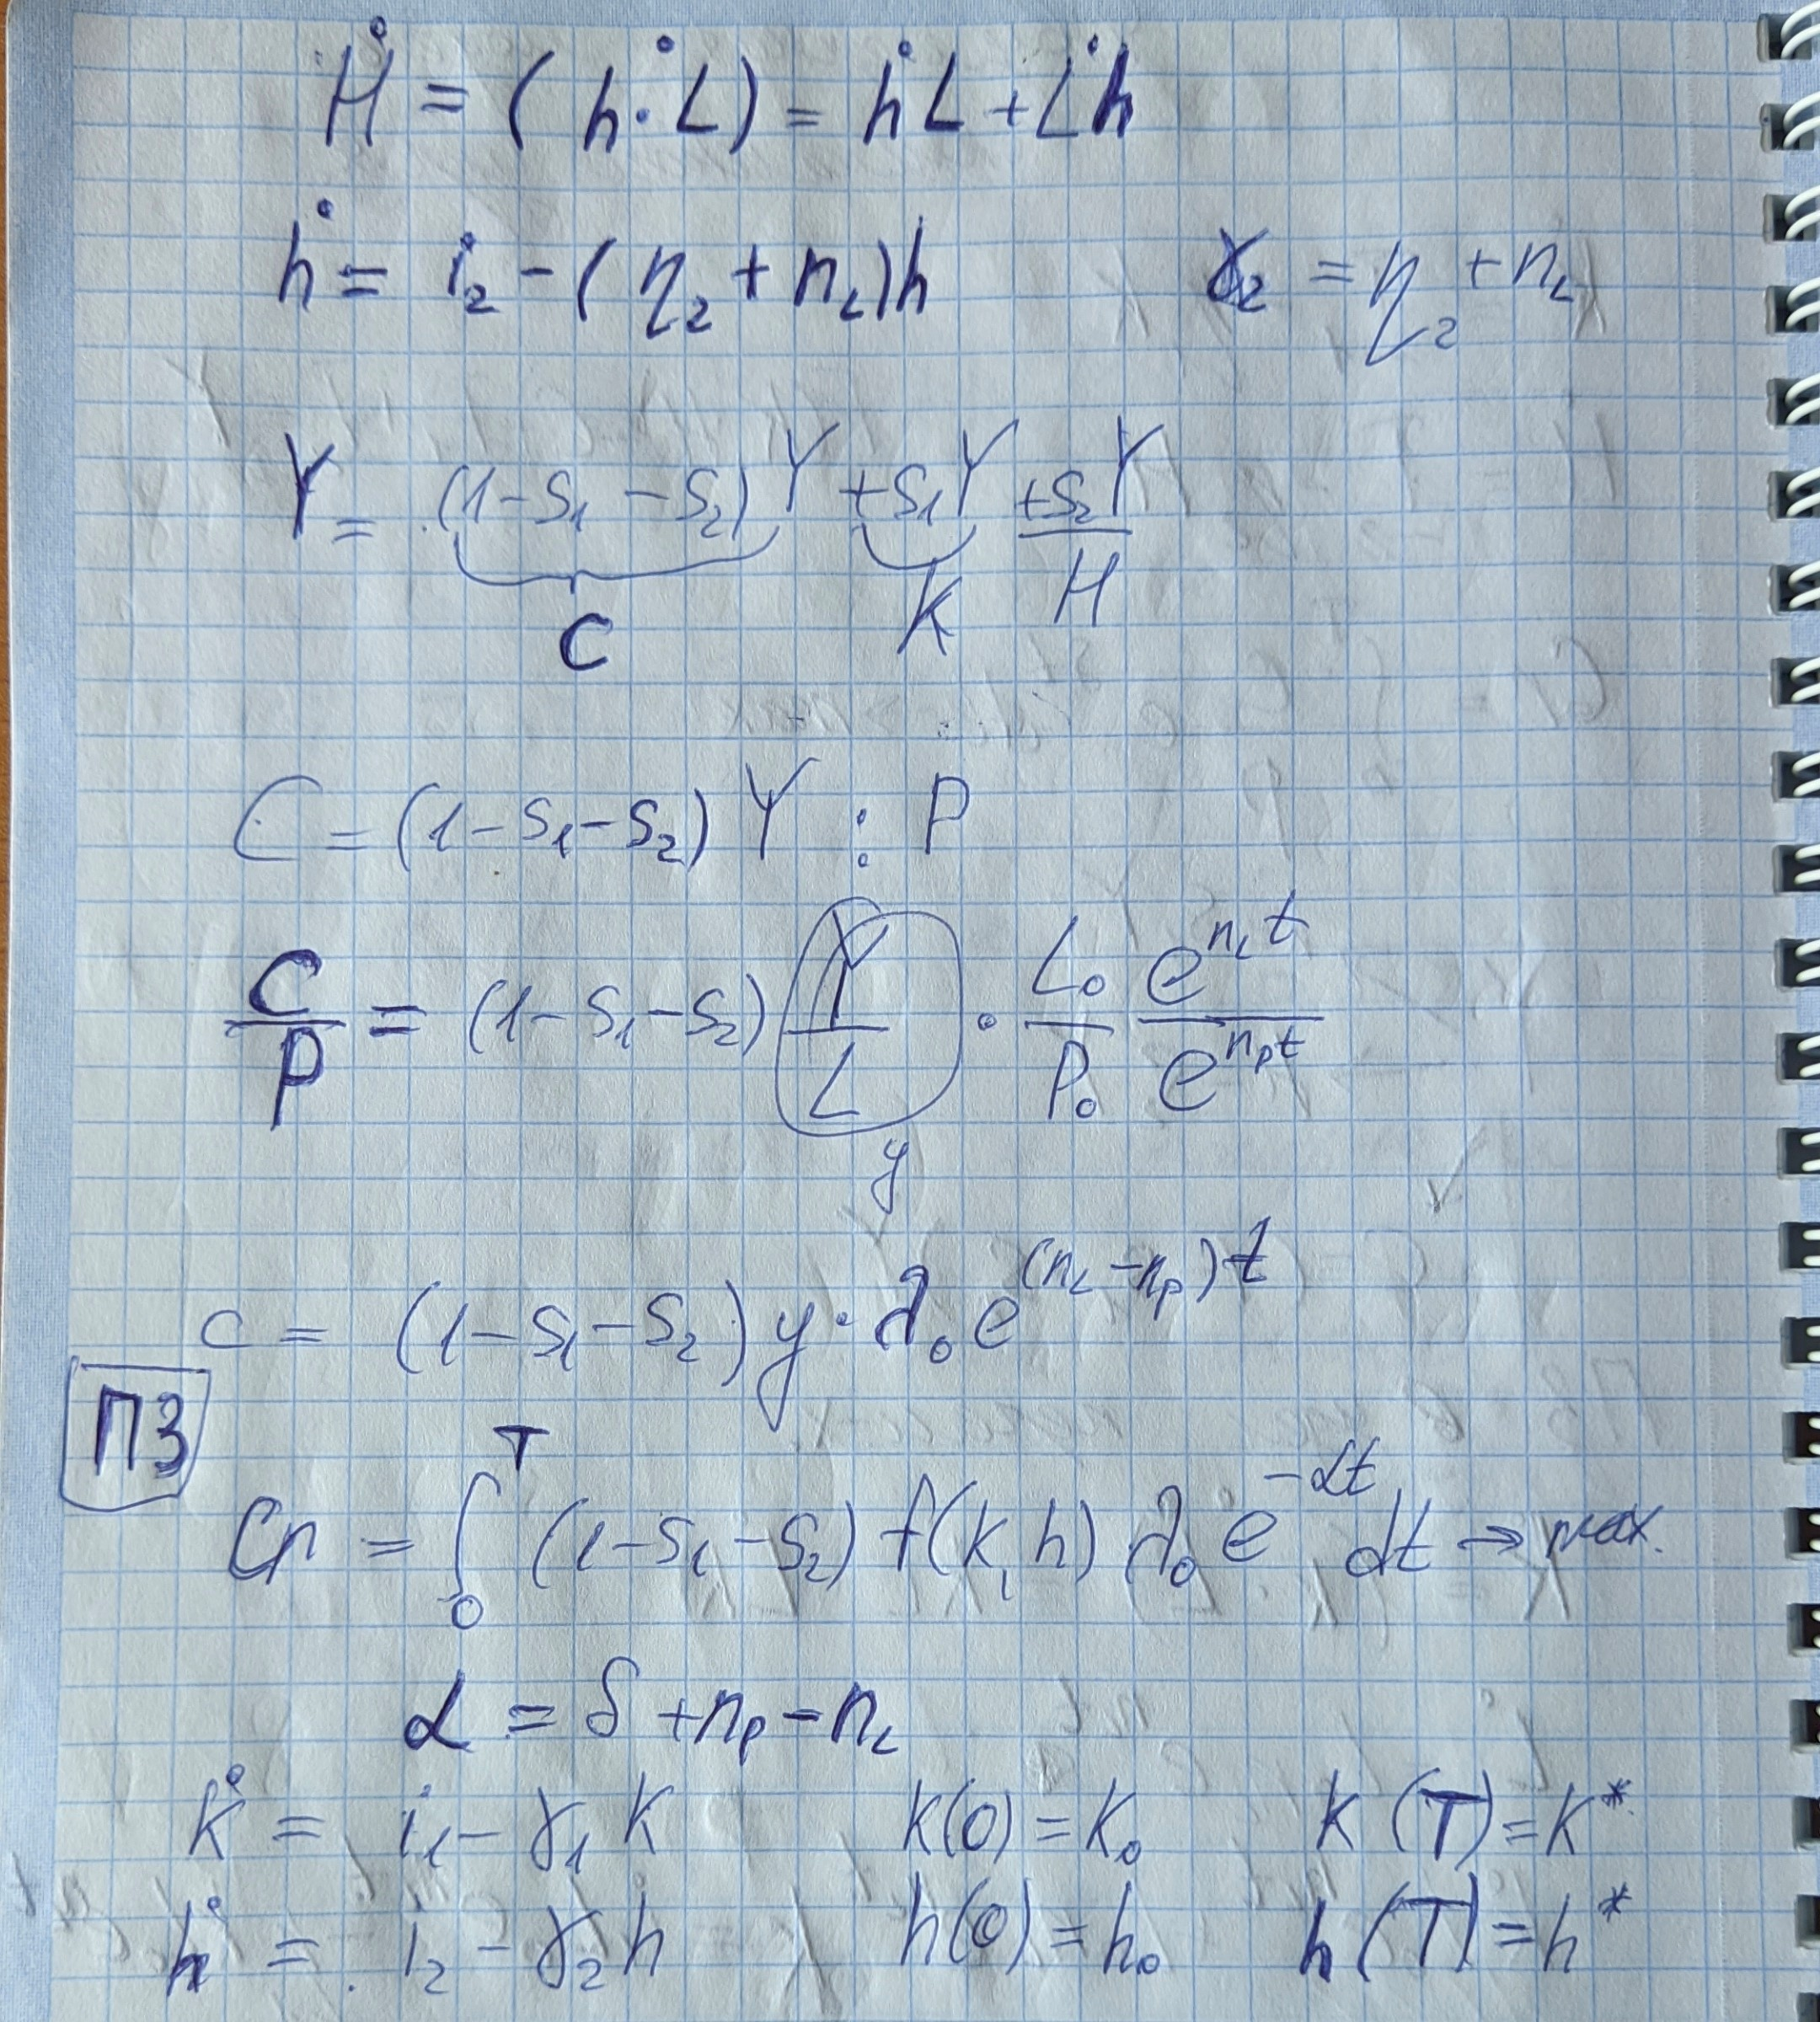 Ḣ = (h·L)˙ = ḣL + L̇h
ḣ = i₂ - (η₂ + n_L)h γ₂ = η₂ + n_L
Y = (1-S₁-S₂)Y + S₁Y + S₂Y
C K H
C = (1-S₁-S₂)Y : P
C/P = (1-S₁-S₂) Y/L · L₀/P₀ e^(n_L t)/e^(n_P t)
y
c = (1-S₁-S₂) y · λ₀ e^((n_L - n_P)t)
ПЗ
Cп = ∫₀ᵀ (1-S₁-S₂) f(k, h) λ₀ e^(-αt) dt → max.
α = δ + n_P - n_L
k̇ = i₁ - γ₁k k(0) = k₀ k(T) = k*
ḣ = i₂ - γ₂h h(0) = h₀ h(T) = h*